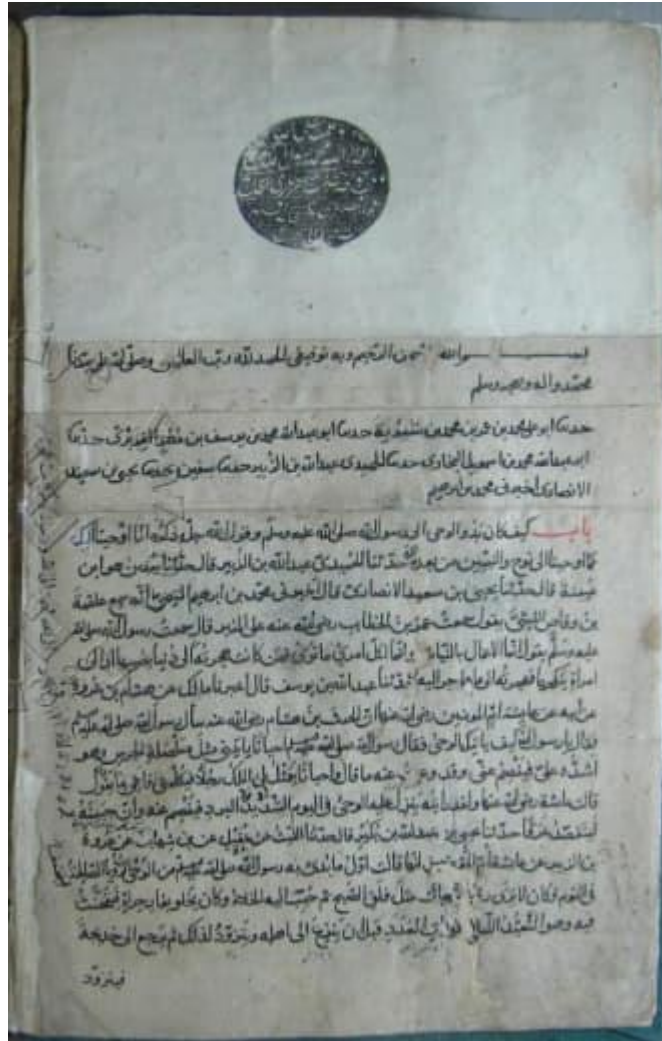 بسم الله الرحمن الرحيم وبه توفيقي الحمد لله رب العالمين وصلى الله على سيدنا
محمد واله وصحبه وسلم
حدثنا ابو علي محمد بن عمر بن محمد بن شبوية حدثنا ابو عبد الله محمد بن يوسف بن مطر الفربري حدثنا
ابو عبد الله محمد بن اسمعيل البخاري حدثنا الحميدي عبد الله بن الزبير حدثنا سفين حدثنا يحيى بن سعيد
الانصاري اخبرني محمد بن ابرهيم
باب كيف كان بدء الوحي الى رسول الله صلى الله عليه وسلم وقول الله جل ذكره انا اوحينا اليك
كما اوحينا الى نوح والنبيين من بعده حدثنا الحميدي عبد الله بن الزبير قال حدثنا
عيينة قال حدثنا يحيى بن سعيد الانصاري قال اخبرني محمد بن ابرهيم التيمي انه سمع علقمة
بن وقاص الليثي يقول سمعت عمر بن الخطاب رضي الله عنه على المنبر قال سمعت رسول الله صلى الله
عليه وسلم يقول انما الاعمال بالنيات وانما لكل امرئ ما نوى فمن كانت هجرته الى دنيا يصيبها او الى
امراة ينكحها فهجرته الى ما هاجر اليه حدثنا عبد الله بن يوسف قال اخبرنا مالك عن هشام بن عروة
عن ابيه عن عايشة ام المومنين رضي الله عنها ان الحرث بن هشام رضي الله عنه سأل رسول الله صلى الله عليه وسلم
فقال يا رسول الله كيف ياتيك الوحي فقال رسول الله صلى الله عليه وسلم احيانا ياتيني مثل صلصلة الجرس وهو
اشده علي فيفصم عني وقد وعيت عنه ما قال واحيانا يتمثل لي الملك رجلا فيكلمني فاعي ما يقول
قالت عايشة رضي الله عنها ولقد رايته ينزل عليه الوحي في اليوم الشديد البرد فيفصم عنه وان جبينه
ليتفصد عرقا حدثنا يحيى بن عبد الله بن بكير قال حدثنا الليث عن عقيل عن بن شهاب عن عروة
بن الزبير عن عايشة ام المؤمنين انها قالت اول ما بدئ به رسول الله صلى الله عليه وسلم من الوحي الرؤيا الصالحة
في النوم فكان لا يرى رؤيا الا جاءت مثل فلق الصبح ثم حبب اليه الخلاء وكان يخلو بغار حراء فيتحنث
فيه وهو التعبد الليالي ذوات العدد قبل ان ينزع الى اهله ويتزود لذلك ثم يرجع الى خديجة
فيتزود